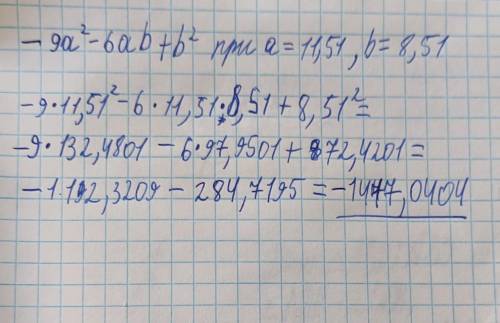 - 9a² - 6ab + b² при a = 11,51, b = 8,51
-9·11,51² - 6·11,51·8,51 + 8,51² =
-9·132,4801 - 6·97,9501 + 72,4201 =
-1.192,3209 - 284,7195 = -1477,0404